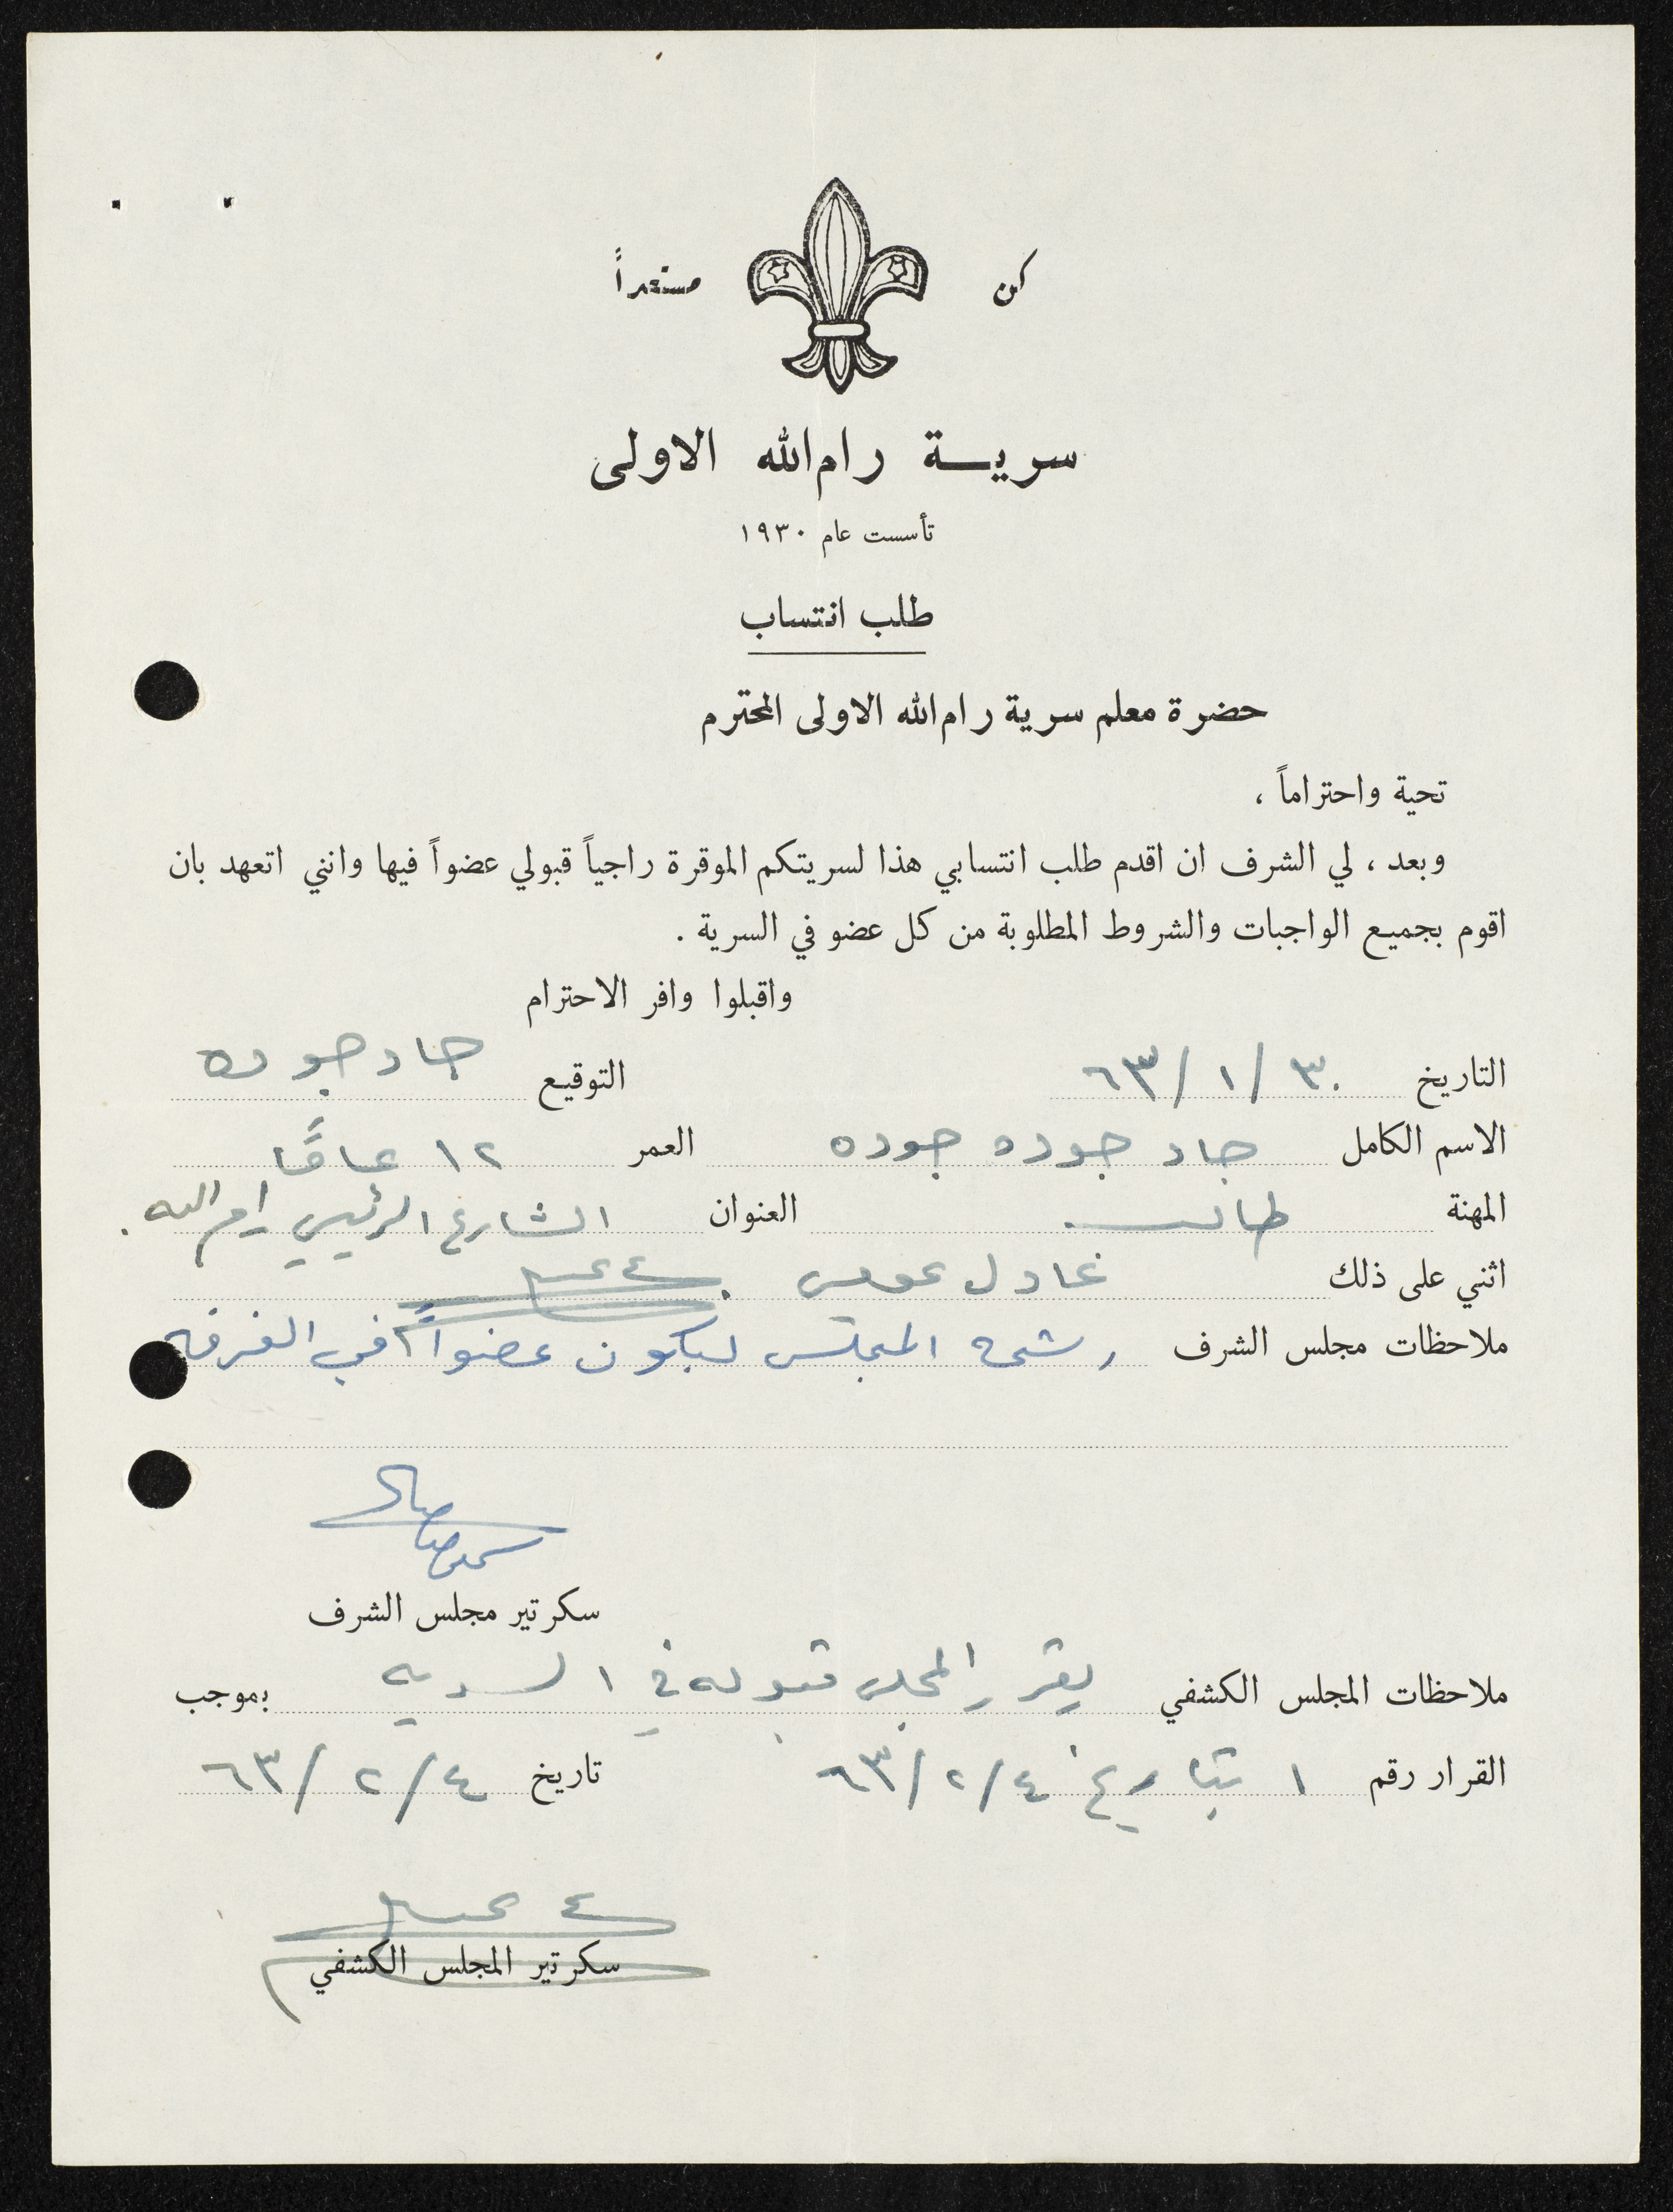 كن مستعداً
سرية رام الله الاولى
تأسست عام ١٩٣٠
طلب انتساب
حضرة معلم سرية رام الله الاولى المحترم
تحية واحتراماً ،
وبعد ، لي الشرف ان اقدم طلب انتسابي هذا لسريتكم الموقرة راجياً قبولي عضواً فيها وانني اتعهد بان
اقوم بجميع الواجبات والشروط المطلوبة من كل عضو في السرية .
واقبلوا وافر الاحترام
التاريخ ٣٠/١/٦٣ التوقيع جاد جوده
الاسم الكامل جاد جوده جوده العمر ١٢ عاماً
المهنة طالب العنوان الشارع الرئيسي رام الله .
اثني على ذلك عادل
ملاحظات مجلس الشرف رشحه المجلس ليكون عضواً في الفرقه
سكرتير مجلس الشرف
ملاحظات المجلس الكشفي يقرر المجلس قبوله في السريه بموجب
القرار رقم ١ بتاريخ ٤/٢/٦٣ تاريخ ٤/٢/٦٣
سكرتير المجلس الكشفي